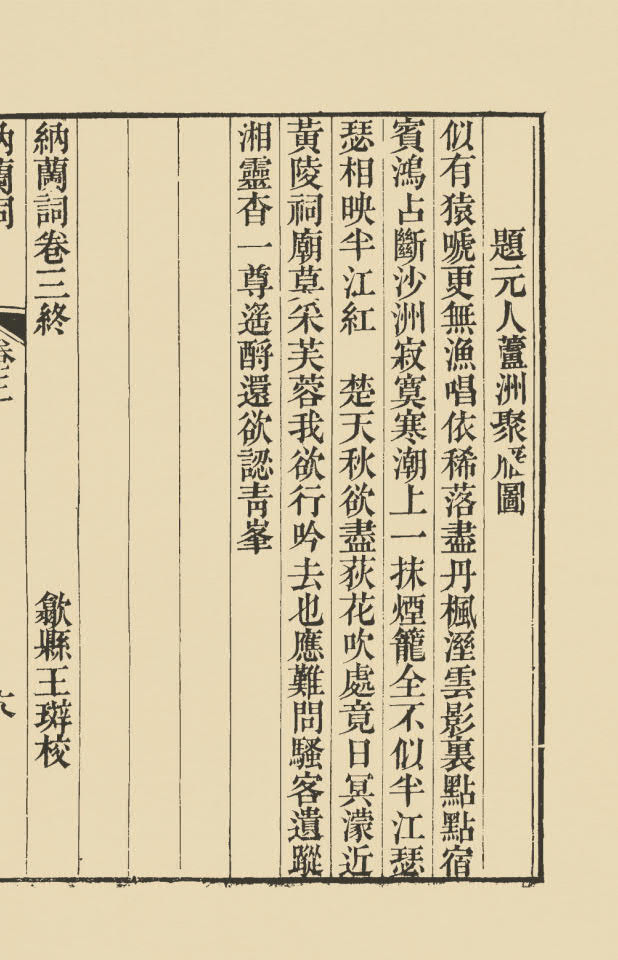 題元人蘆洲聚雁圖
似有猿嗁更無漁唱依稀落盡丹楓溼雲影裏點點宿
賓鴻占斷沙洲寂寞寒潮上一抹煙籠全不似半江瑟
瑟相映半江紅　楚天秋欲盡荻花吹處竟日冥濛近
黃陵祠廟莫采芙蓉我欲行吟去也應難問騷客遺蹤
湘靈杳一尊遙酹還欲認靑峯
納蘭詞卷三終　歙縣王校
納蘭詞　卷三